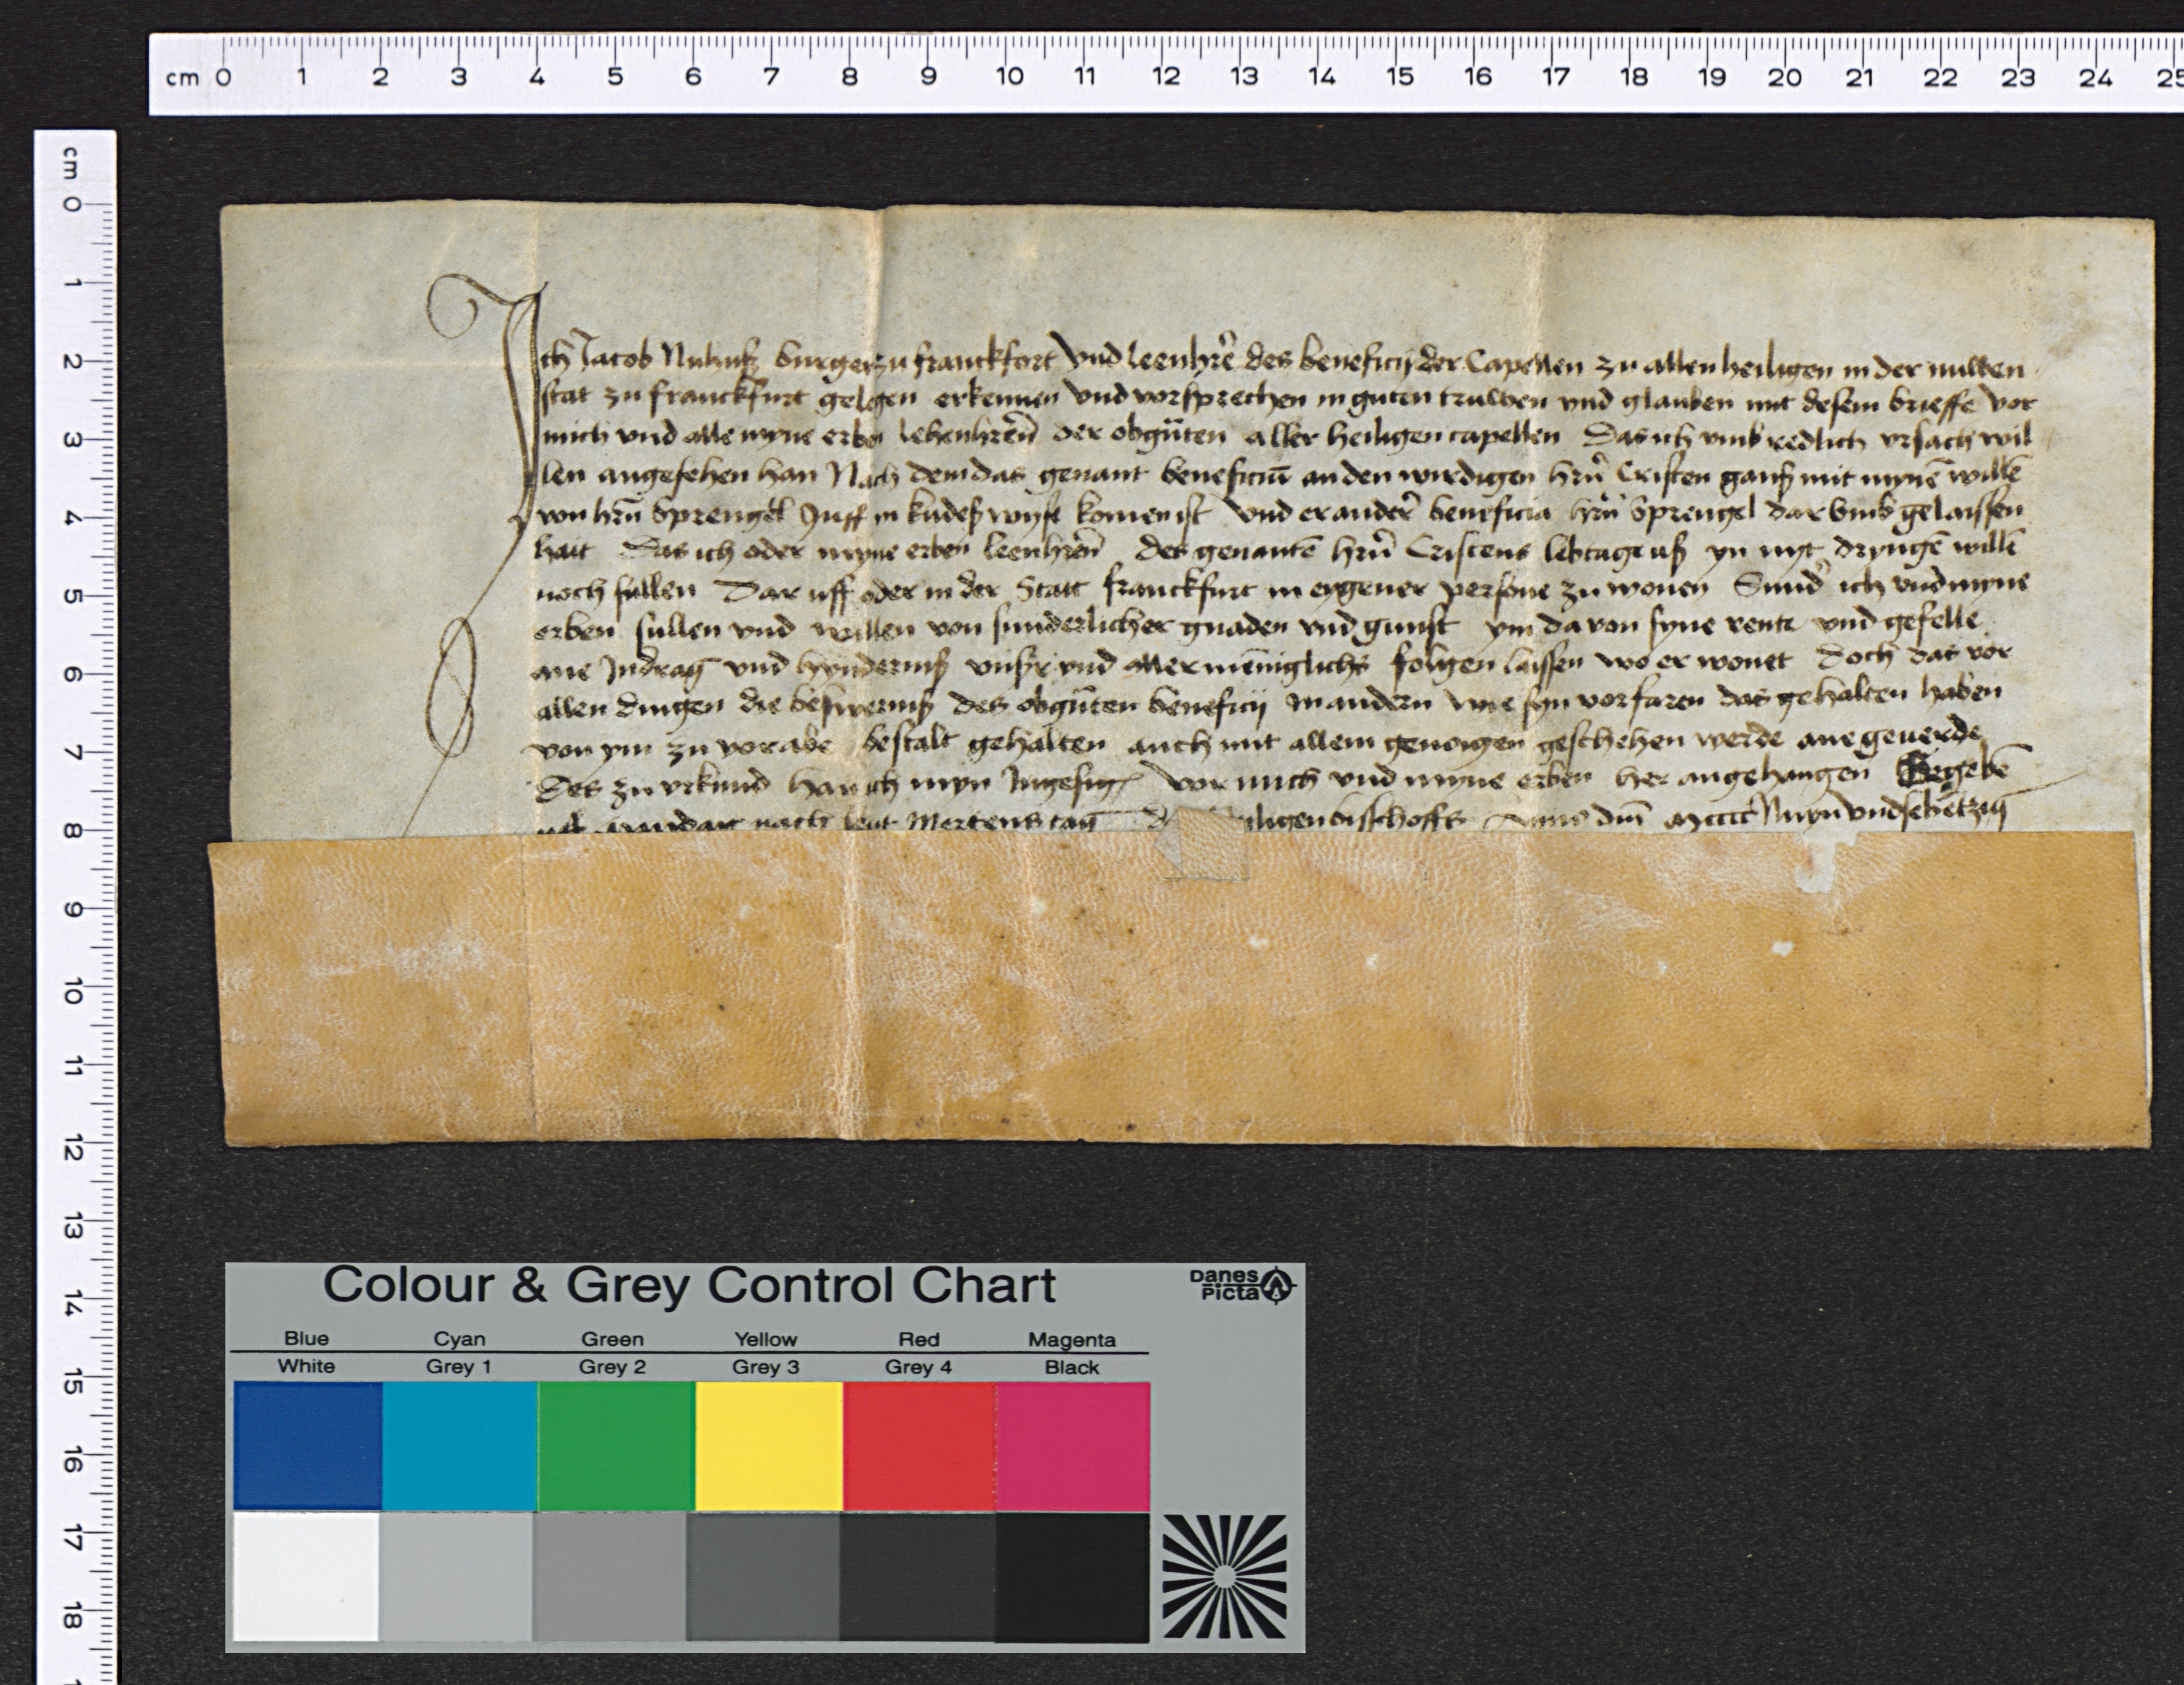 cm 0 1 2 3 4 5 6 7 8 9 10 11 12 13 14 15 16 17 18 19 20 21 22 23 24 25
cm 0 1 2 3 4 5 6 7 8 9 10 11 12 13 14 15 16 17 18
Ich Jacob Nuhuß burger zu franckfort vnd leenhrē des beneficij der Capellen zu allen heiligen in der nuwen
stat zu franckfurt gelegen erkennen vnd vorsprechen in guten truwen vnd glauben mit desem brieffe vor
mich vnd alle myne erben lehenhrēn der obgūten aller heiligen capellen Das ich vmb redlich vrsach wil
len angesehen han Nach dem das genant beneficiū an den wirdigen hrñ Cristen gantz mit mynē willē
von hrñ Sprengel komen ist vnd er ander beneficia hrñ Sprengel dar vmb gelaissen
hait Das ich oder myne erben leenhrēn des genantē hrñ Cristens lebtage uß yn nyt dryngē willē
noch sullen Dar uff oder in der Statt franckfurt in eygener persone zu wonen Sund ich vnd myne
erben sullen vnd willen von sunderlicher gnaden vnd gunst ym da von syne rente vnd gefelle
ane Indrag vnd hynderniß vnser vnd allermēniglichs folgen laissen wo er wonet Doch das vor
allen dingen die beswerniß des obgūten beneficij in andern wie syn vorfaren das gehalten haben
von ym zu vor abe bestalt gehalten auch mit allem genoigen geschehen werde ane geuerde
Des zu vrkund han ich myn Ingesig vor mich vnd myne erben her angehangen Gegebē
nach sent Mertens tag heiligen bisschoffs Anno dm̄ Mcccc Nuyn vnd sebētzig
Colour & Grey Control Chart
Danes Picta
Blue Cyan Green Yellow Red Magenta
White Grey 1 Grey 2 Grey 3 Grey 4 Black